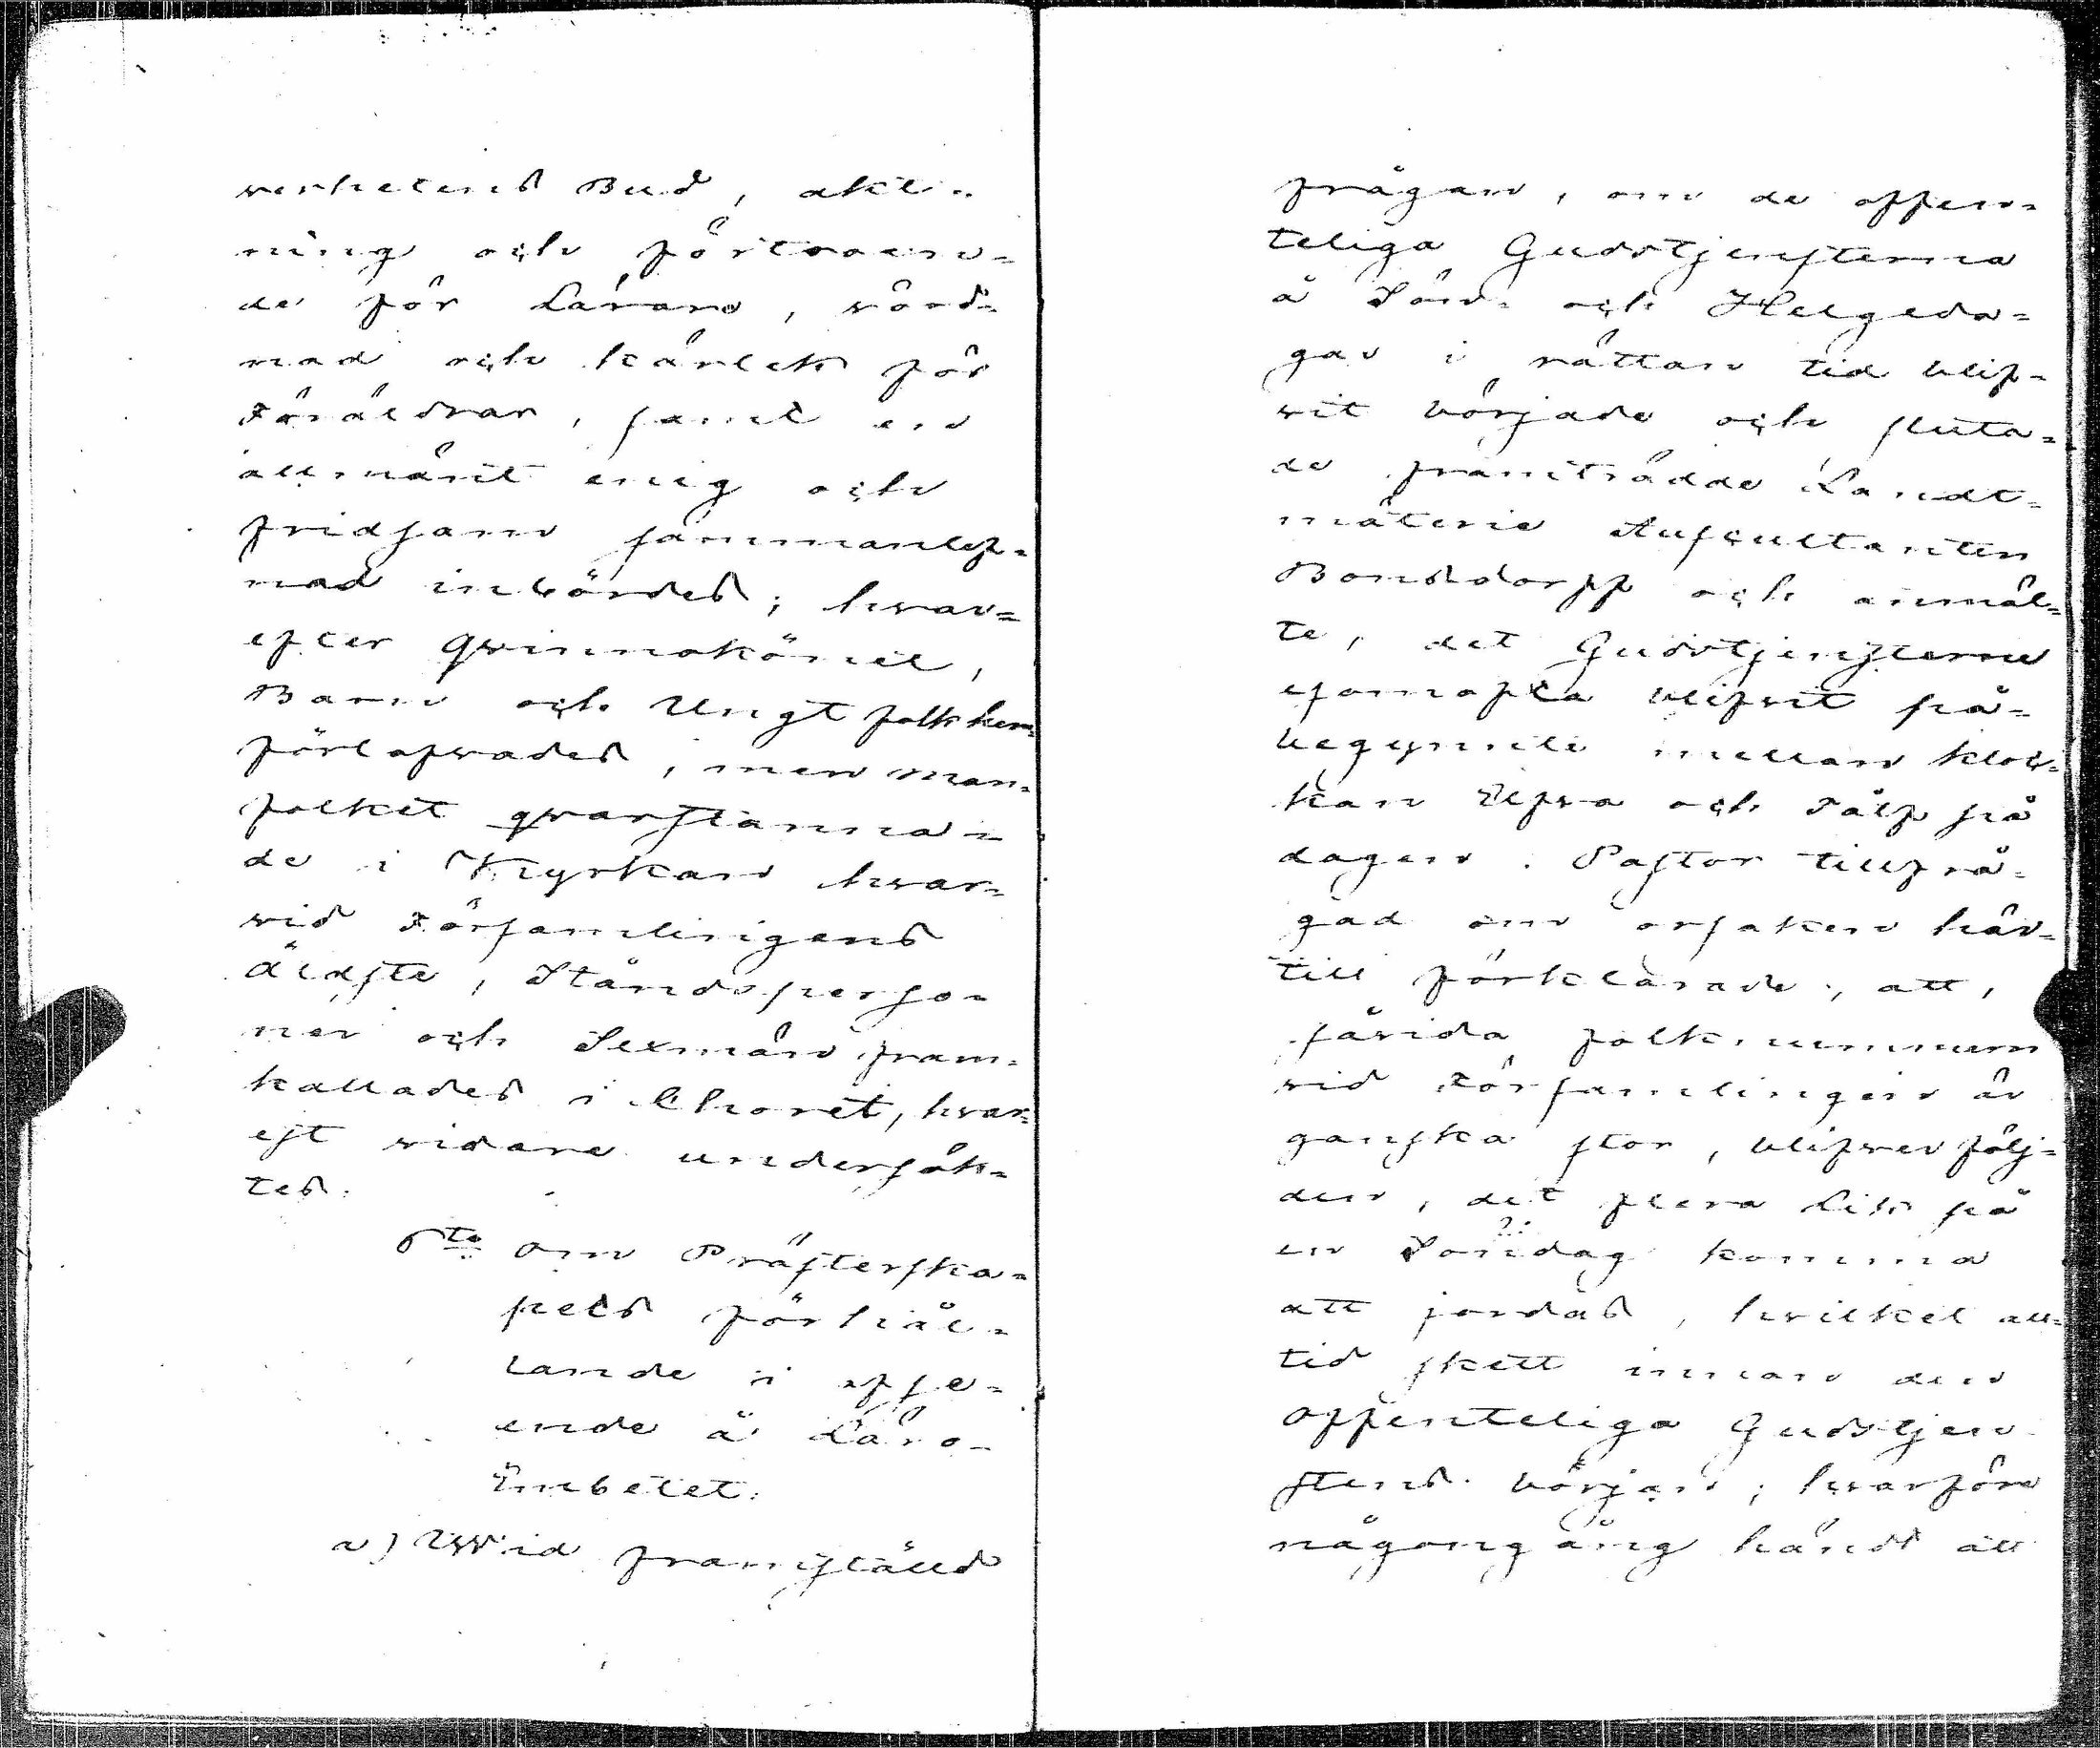 werhetens Bud, akt=
ning och förtroen=
de för Läraren, wörd=
nad och kärlek för
Föräldrar, samt en
allmänt enig och
fridsam sammanlef=
nad inbördes; hwar=
efter Qwinnokönet,
Barn och Ungt folk hem=
förlofwades, men Man=
folket qwarstanna=
de i Kyrkan hwar=
wid Församlingens
äldste, Ståndsperso=
ner och Sexmän fram=
kallades i Choret, hwar=
est widare undersök=
tes:
6to Om Prästerska=
pets förhål=
lande i afse=
ende å Läro=
Embetet:
a) Wid framstäld
frågan, om de offen=
teliga Gudstjensterna
å Sön= och Helgeda=
gar i rättan tid blif=
wit började och sluta=
de framträdde Landt=
mäterie Auscultanten
Bonsdorff och anmäl=
te, det Gudstjensterne
esomofta blifwit på=
begynnte mellan kloc=
kan Elfwa och Tålf på
dagen. Pastor tillfrå=
gad om orsaken här=
till förklarade, att,
såvida folk nummern
wid Församlingen är
ganska stor, blifwer följ=
den, det flera Lik på
en Söndag komma
att jordas, hwilket all=
tid skett innan den
Offenteliga Gudstjen
stens början; hwarföre
någongång händt att